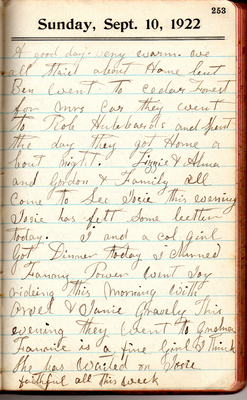 253
Sunday, Sept. 10, 1922
A good day. very warm. we
all staid about Home but
Ben went to Cedar Forest
for Mrs Car they went
to Rob Hubbards and spent
the day they got Home a
bout night. Lizzie & Alma
and Gordon & Family all
come to See Josie this evening
Josie has felt Some better
today. I and a col girl
Got Dinner today I churned
Fannny Tower went Joy
rideing this Morning With
& Janie Gravely This
evening they went to
Fannie is a fine Girl I think
She has waited on Josie
faithful all this week